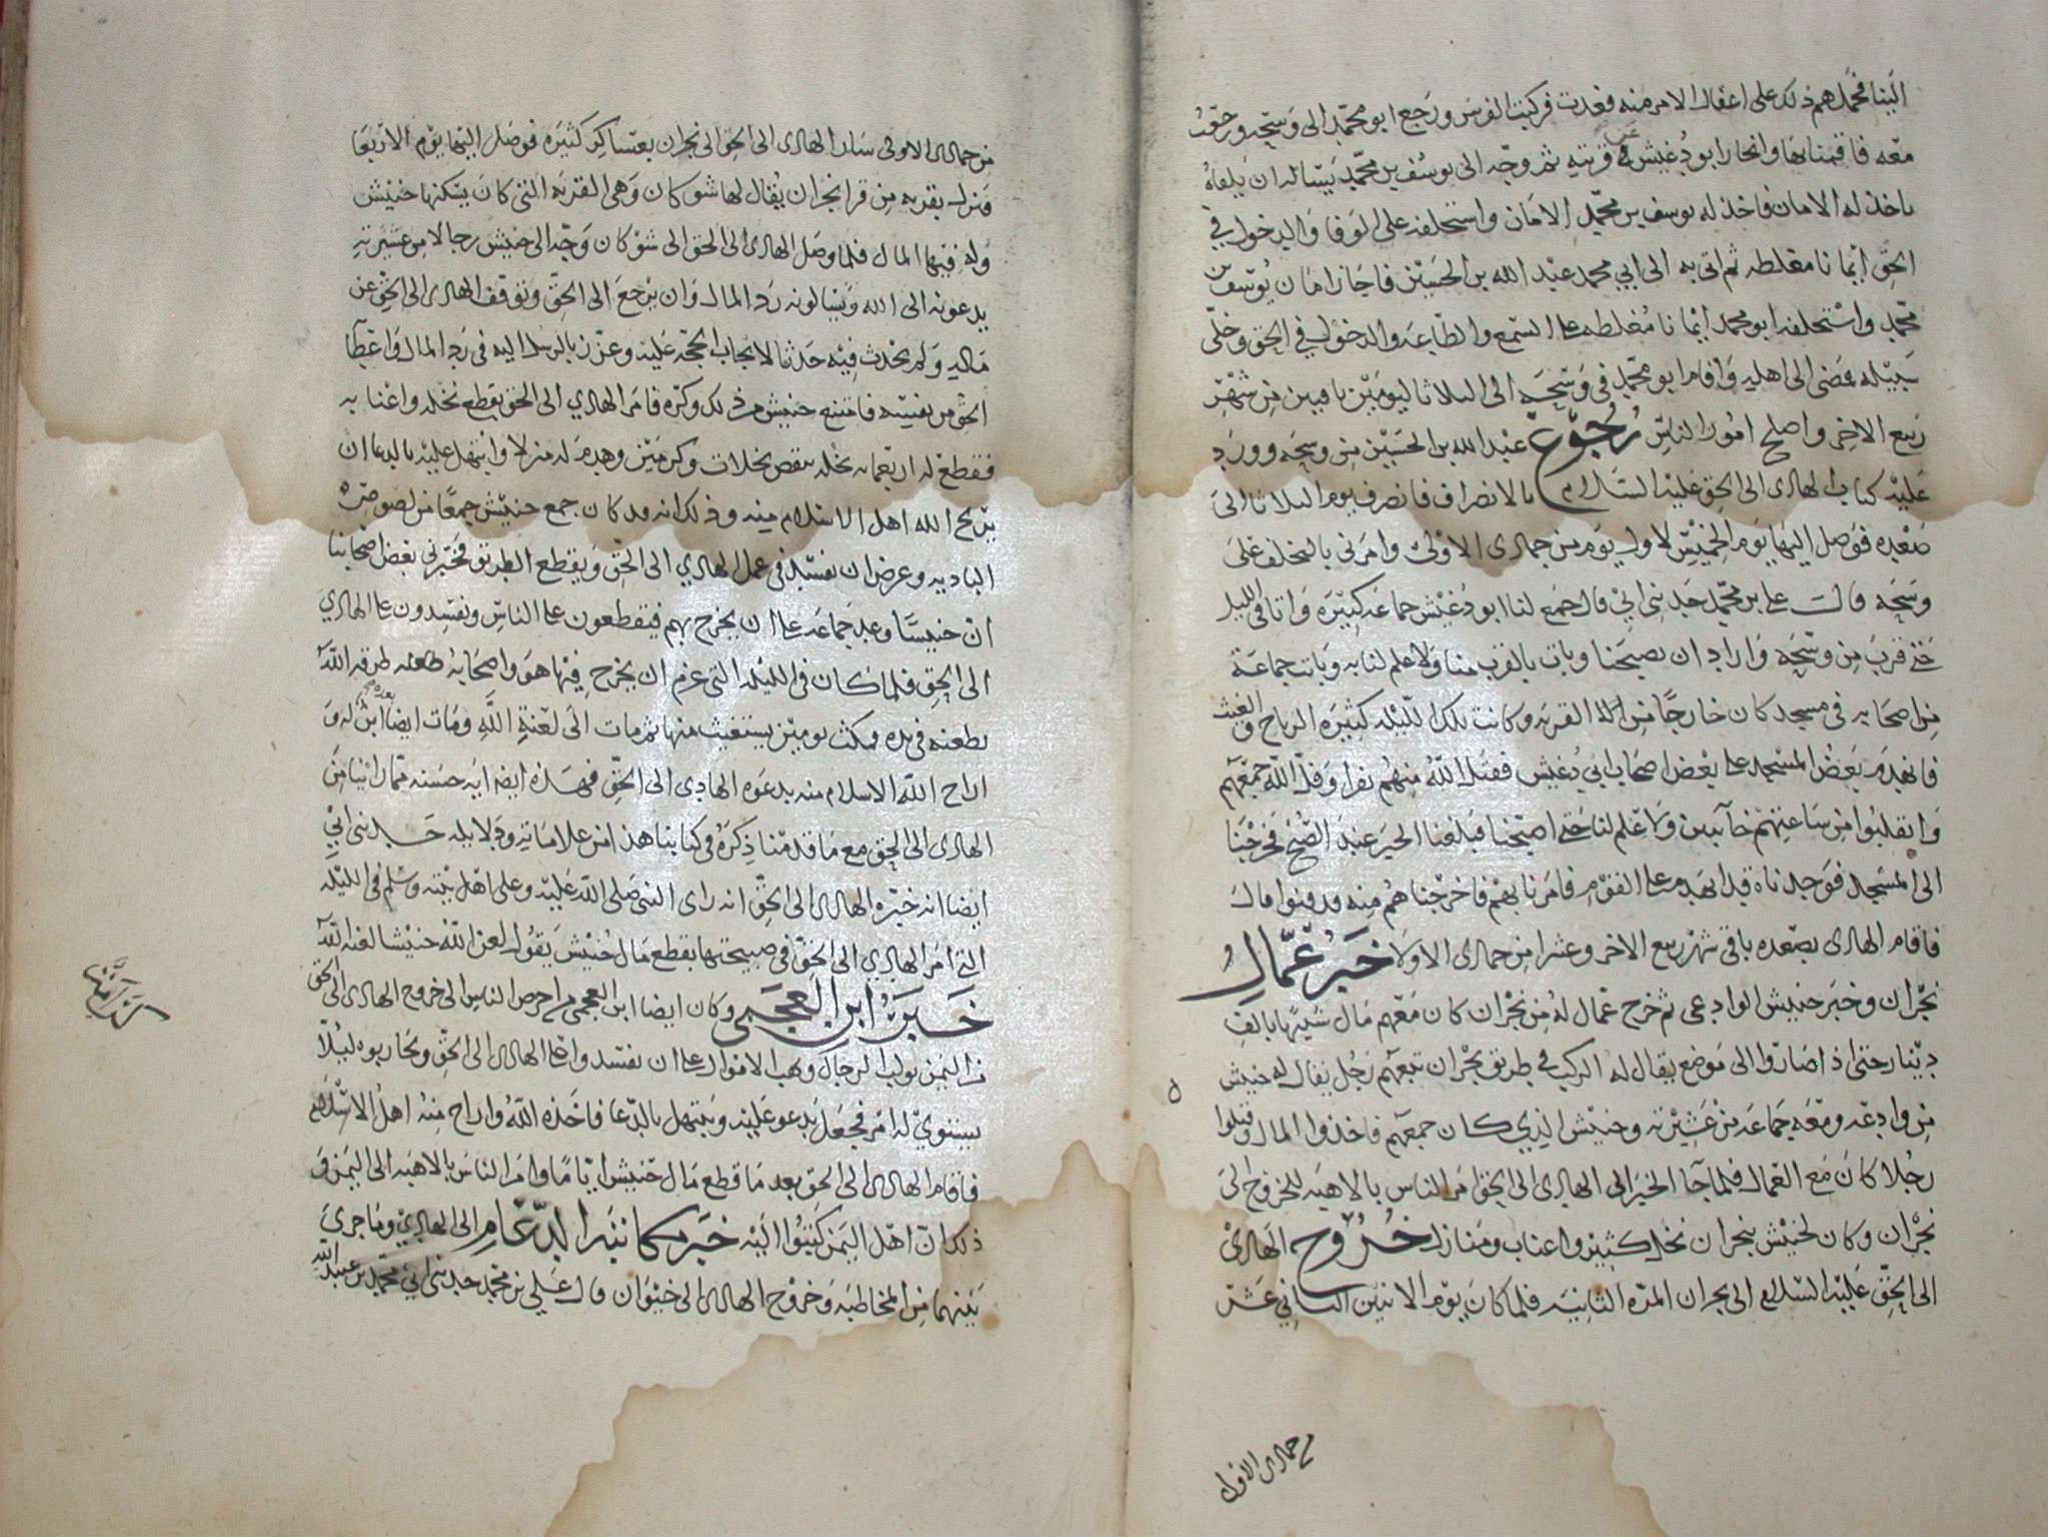 الينا فجملهم ذلك على اغفال الامر منه فغدت فركبت الفرس ورجع ابو محمد الى وسحه ورحت
معه فاقمنا بها وانحاز ابو دغيش في قريته ثم وجه الى يوسف بن محمد يساله ان يلقاه
ياخذ له الامان فاخذ له يوسف بن محمد الامان واستحلفه على الوفا والدخول في
الحق ايمانا مغلطه ثم اتى به الى ابي محمد عبد الله بن الحسين فاجاز امان يوسف بن
محمد واستحلفه ابو محمد ايمانا مغلطه على السمع والطاعه والدخول في الحق وخلى
سبيله فمضى الى اهله واقام ابو محمد في وسحه الى الثلاثا ليومين باقيين من شهر
ربيع الاخر واصلح امور الناس رجوع عبد الله بن الحسين من وسحه وورد
عليه كتاب الهادى الى الحق عليه السلام بالانصراف فانصرف يوم الثلاثا الى
صعده فوصل اليها يوم الخميس لاول يوم من جمادى الاولى وامرني بالتخلف على
وسحه قال علي بن محمد حدثني ابي قال جمع لنا ابو دغيش جماعه كبيره واتا في الليل
حتى قرب من وسحه واراد ان يصبحنا وبات بالقرب منا ولا علم لنا به وبات جماعة
من اصحابه في مسجد كان خارجا من القريه وكانت تلك الليله كثيره الرياح والغيث
فانهدم بعض المسجد على بعض اصحاب ابي دغيش فقتل الله منهم نفرا وفل الله جمعهم
وانقلبوا من ساعتهم خائبين ولا علم لنا حتى اصبحنا فبلغنا الخبر عند الصبح فخرجنا
الى المسجد فوجدناه قد انهدم على القوم فامرنا بهم فاخرجناهم منه ودفنوا قال
فاقام الهادى بصعده باقي شهر ربيع الاخر وعشرا من جمادى الاولا خبر عمال
نجران وخبر حنيش الوادعى ثم خرج عمال له من نجران كان معهم مال شبيها بالف
دينار حتى اذا صاروا الى موضع يقال له الركب في طريق نجران تبعهم رجل يقال له حنيش
من وادعه ومعه جماعه من عشيرته وحنيش الذي كان جمعهم فاخذوا المال وقتلوا
رجلا كان مع العمال فلما جا الخبر الى الهادى الى الحق امر الناس بالاهبه للخروج الى
نجران وكان لحنيش بنجران نخل كثير واعناب ومنازل خروج الهادى
الى الحق عليه السلام الى نجران المره الثانيه فلما كان يوم الاثنين الثاني عشر
من جمادى الاول
من جمادى الاولى سار الهادى الى الحق الى نجران بعساكر كثيره فوصل اليها يوم الاربعا
فنزل بقريه من قرا نجران يقال لها شوكان وهى القريه التي كان يسكنها حنيش
وله فيها المال فلما وصل الهادى الى الحق الى شوكان وجه الى حنيش رجالا من عشيرته
يدعونه الى الله ويسالونه رد المال وان يرجع الى الحق وتوقف الهادى الى الحق عن
ماله ولم يحدث فيه حدثا لايجاب الحجه عليه وعزز بالرسل اليه في رد المال واعطا
الحق من نفسه فامتنع حنيش من ذلك وكره فامر الهادي الى الحق بقطع نخله واعنابه
فقطع له اربعمايه نخله تنقص نخلات وكرمين وهدم له منزلا وابتهل عليه بالدعا ان
يريح الله اهل الاسلام منه وذلك انه قد كان جمع حنيش جمعا من لصوص
الباديه وعرض ان يفسد في عمل الهادي الى الحق ويقطع الطريق فخبرني بعض اصحابنا
ان حنيشا وعد جماعه على ان يخرج بهم فيقطعون على الناس ويفسدون على الهادي
الى الحق فلما كان في الليله التي عزم ان يخرج فيها هو واصحابه طعنه طرقه الله
بطعنه في يده فمكث يومين يستغيث منها ثم مات الى لعنة الله ومات ايضا ابن له بعده و
اراح الله الاسلام منه بدعوه الهادي الى الحق فهذه ايضا ايه حسنه مما راينا من
الهادى الى الحق مع ما قدمنا ذكره في كتابنا هذا من علاماته ودلايله حدثني ابي
ايضا انه خبره الهادى الى الحق انه راى النبي صلى الله عليه وعلى اهل بيته وسلم في الليله
التي امر الهادي الى الحق في صبيحتها بقطع مال حنيش يقول لعن الله حنيشا لعنه الله
خبر ابن العجمى وكان ايضا ابن العجمى من احرص الناس الى خروج الهادى الى الحق
من اليمن يولب الرجال ويهب الاموال على ان يفسدوا على الهادى الى الحق ويحاربوه ليلا
يستوي له امر فجعل يدعو عليه ويبتهل بالدعا فاخذه الله واراح منه اهل الاسلام
فاقام الهادى الى الحق بعد ما قطع مال حنيش اياما وامر الناس بالاهبه الى اليمن و
ذلك ان اهل اليمن كتبوا اليه خبر مكاتبه الدعام الى الهادي وما جرى
بينهما من المخاطبه وخروج الهادى الى خيوان قال علي بن محمد حدثني ابي محمد بن عبيد الله